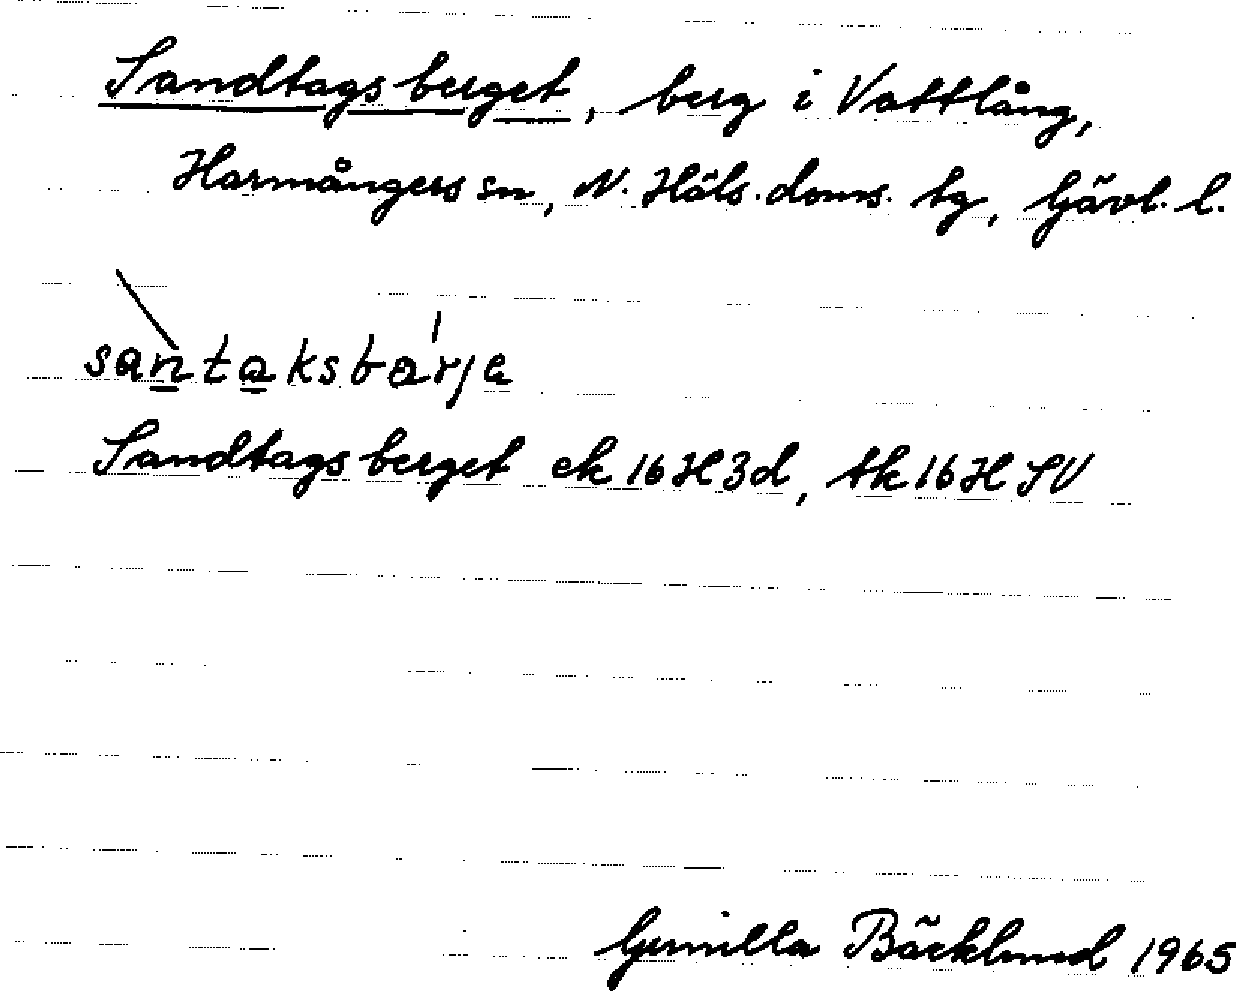 Sandtagsberget, berg i Vattlång,
Harmångers sn, N. Häls. doms. tg, Gävl. l.
santaksbarja
Sandtagsberget ek 16H3d, tk 16H SV
Gunilla Bäcklund 1965